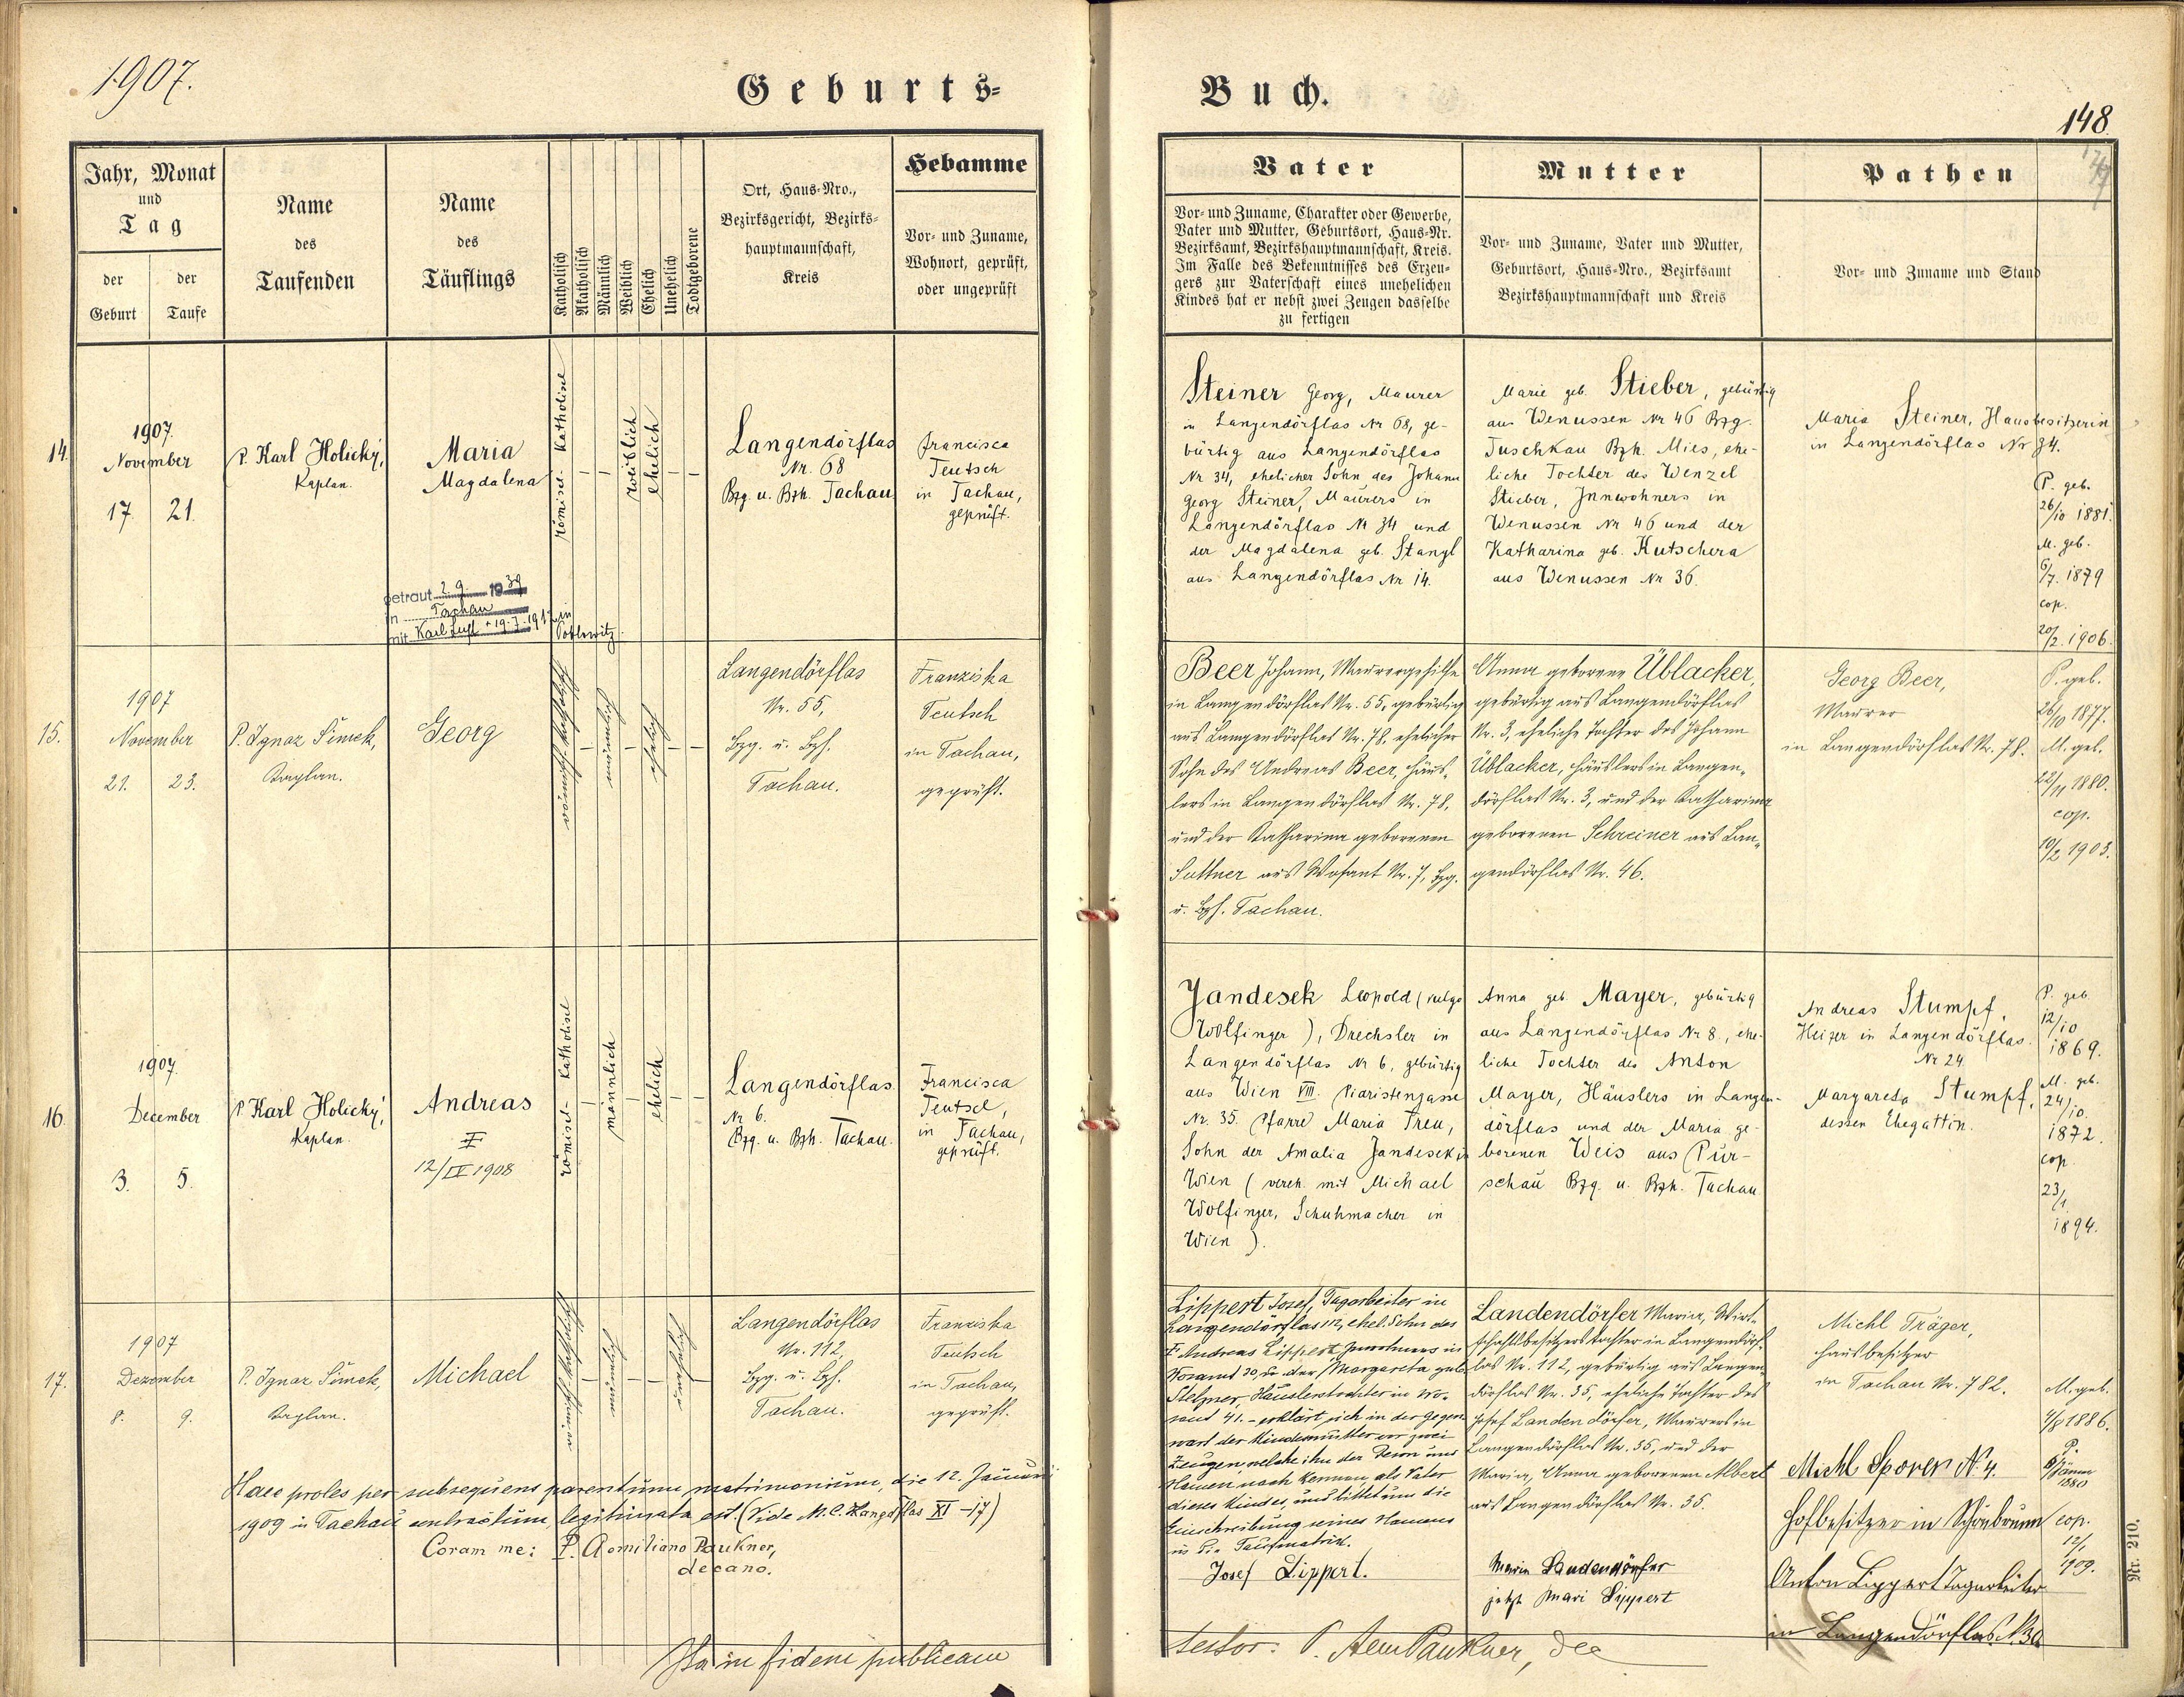 1907.
Geburts-
Jahr, Monat
und
Tag
der
Geburt
der
Taufe
Name
des
Taufenden
Name
des
Täuflings
Katholisch
Akatholisch
Männlich
Weiblich
Ehelich
Unehelich
Todtgeborene
Ort, Haus-Nro.,
Bezirksgericht, Bezirks-
hauptmannschaft,
Kreis
Hebamme
Vor- und Zuname,
Wohnort, geprüft,
oder ungeprüft
14.
1907.
November
17. 21.
P. Karl Holický,
Kaplan.
Maria
Magdalena
getraut 2. 9. 1939
in Tachau
mit Karl
römisch-katholisch
weiblich
ehelich
Langendörflas
Nr. 68
Bzg. u. Bzh. Tachau
Francisca
Teutsch
in Tachau,
geprüft.
15.
1907
November
21. 23.
P. Ignaz Šimek,
Kaplan.
Georg
römisch-katholisch
männlich
ehelich
Langendörflas
Nr. 55,
Bzg. u. Bzh.
Tachau.
Franziska
Teutsch
in Tachau,
geprüft.
16.
1907.
December
3. 5.
P. Karl Holický,
Kaplan.
Andreas
‡
12/IV 1908
römisch-katholisch
männlich
ehelich
Langendörflas.
Nr 6.
Bzg. u. Bzh. Tachau.
Francisca
Teutsch,
in Tachau,
geprüft.
17.
1907
Dezember
8. 9.
P. Ignaz Šimek,
Kaplan.
Michael
römisch-katholisch
männlich
unehelich
Langendörflas
Nr. 112,
Bzg. u. Bzh.
Tachau.
Franziska
Teutsch
in Tachau,
geprüft.
Haec proles per subsequens parentum matrimonium, die 12. Januarii
1909 in Tachau contractum, legitimata est. (Vide M. C. Langdflas XI-17)
Coram me: P. Aemiliano Paukner,
decano.
Ita in fidem publicam
Buch.
148
Vater
Vor- und Zuname, Charakter oder Gewerbe,
Vater und Mutter, Geburtsort, Haus-Nr.
Bezirksamt, Bezirkshauptmannschaft, Kreis.
Im Falle des Bekenntnisses des Erzeu-
gers zur Vaterschaft eines unehelichen
Kindes hat er nebst zwei Zeugen dasselbe
zu fertigen
Mutter
Vor- und Zuname, Vater und Mutter,
Geburtsort, Haus-Nro., Bezirksamt
Bezirkshauptmannschaft und Kreis
Pathen
Vor- und Zuname und Stand
Steiner Georg, Maurer
in Langendörflas Nr 68, ge-
bürtig aus Langendörflas
Nr 34, ehelicher Sohn des Johann
Georg Steiner, Maurers in
Langendörflas Nr 34 und
der Magdalena geb. Stangl
aus Langendörflas Nr 14.
Marie geb. Stieber, gebürtig
aus Wenussen Nr 46 Bzg.
Tuschkau Bzh. Mies, ehe-
liche Tochter des Wenzel
Stieber, Innwohners in
Wenussen Nr 46 und der
Katharina geb. Kutschera
aus Wenussen Nr 36.
Maria Steiner, Hausbesitzerin
in Langendörflas Nr 34.
P. geb.
26/10 1881.
M. geb.
6/7. 1879
cop.
20/2. 1906.
Beer Johann, Maurergehilfe
in Langendörflas Nr. 55, gebürtig
aus Langendörflas Nr. 78, ehelicher
Sohn des Andreas Beer, Häus-
lers in Langendörflas Nr. 78,
und der Katharina geborenen
Suttner aus Wosant Nr. 7, Bzg.
u. Bzh. Tachau.
Anna geborene Üblacker,
gebürtig aus Langendörflas
Nr. 3, eheliche Tochter des Johann
Üblacker, Häuslers in Langen-
dörflas Nr. 3, und der Katharina
geborenen Schreiner aus Lan-
gendörflas Nr. 46.
Georg Beer,
Maurer
in Langendörflas Nr. 78.
P. geb.
26/10 1877.
M. geb.
22/11 1880.
cop.
10/2 1903.
Jandesek Leopold (vulgo
Wolfinger), Drechsler in
Langendörflas Nr 6, gebürtig
aus Wien VIII. Piaristengasse
Nr. 35. Pfarre Maria Treu,
Sohn der Amalia Jandesek in
Wien (vereh. mit Michael
Wolfinger, Schuhmacher in
Wien).
Anna geb. Mayer, gebürtig
aus Langendörflas Nr 8., ehe-
liche Tochter des Anton
Mayer, Häuslers in Langen-
dörflas und der Maria ge-
borenen Weis aus Pur-
schau Bzg. u. Bzh. Tachau
Andreas Stumpf,
Heizer in Langendörflas.
Nr 24
Margareta Stumpf,
dessen Ehegattin.
P. geb.
12/10
1869.
M. geb.
24/10.
1872.
cop.
23/1
1894.
Lippert Josef, Tagarbeiter in
Langendörflas 112, ehel. Sohn des
‡ Andreas Lippert Inwohners in
Wosant 30, u. der Margareta geb.
Stelzner, Häuslerstochter in Wo-
sant 41. - erklärt sich in der Gegen-
wart der Kindesmutter vor zwei
Zeugen welche ihn der Person und
Namen nach kennen, als Vater
dieses Kindes, und bittet um die
Einschreibung seines Namens
in die Taufmatrik.
Josef Lippert.
Landendörfer Maria, Wirt-
schaftsbesitzerstochter in Langendörf-
las Nr. 112, gebürtig aus Langen-
dörflas Nr. 35, eheliche Tochter des
Josef Landendörfer, Maurers in
Langendörflas Nr. 35, und der
Maria Anna geborenen Albert
aus Langendörflas Nr. 35.
Maria Landendörfer
jetzt Mari Lippert
Michl Träger,
Hausbesitzer
in Tachau Nr. 782.
Michl Sporer N. 4.
Hofbesitzer in Schönbrunn
Anton Lippert Tagarbeiter
in Langendörflas N. 30
M. geb.
4/8 1886.
P.
1880
cop.
12/1
1909.
testor: P. Aem Paukner, Dec
Nr. 210.